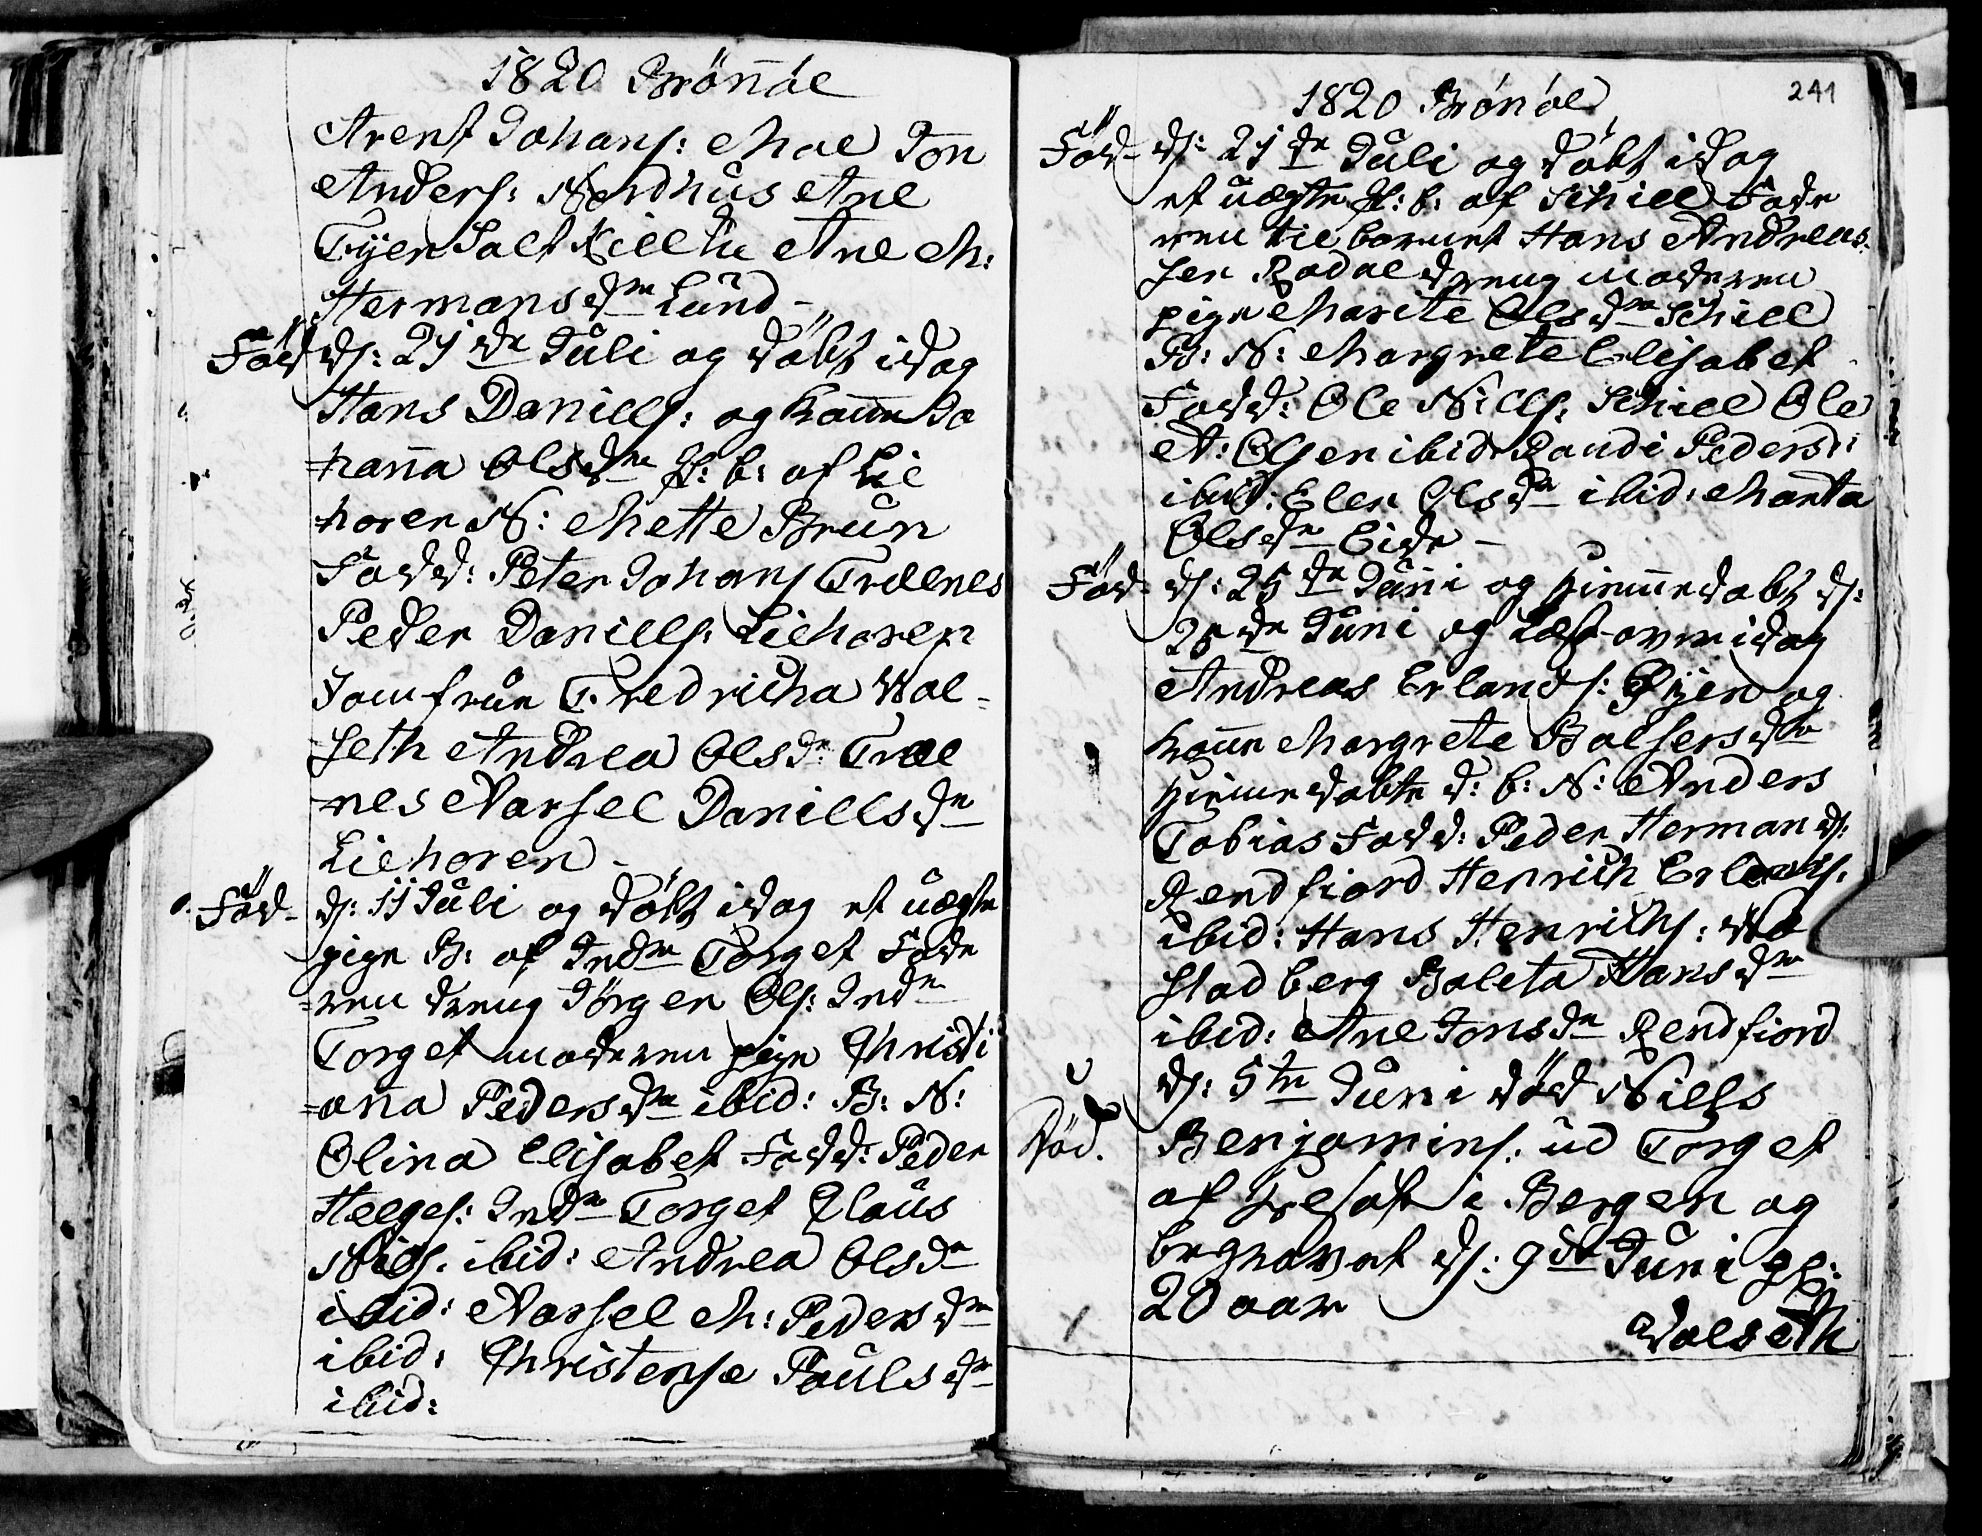 1820 Brönöe
Arent Johans: Moe Jon
Anders: Nordhus Ane
Tyer Salt Kiella Ane M:
Hermansdr Lund –
Föd ds: 21de Juli og döbt idag
Hans Daniells: og kone Jo
hanna Olsdr Æ: b: af Lil
horen N: Mette Brun
Fadd: Peter Johans Trælnes
Peder Daniells: Lilhoren
Jomfrue Fredricha Wol-
seth Andrea Olsdr Træl
nes Marsel Daniellsdr
Lilhoren –
Föd ds: 11 Juli og döbt idag et uægte
pige B: af Indre Torget Fade
ren dreng Jörgen Ols: Indre
Torget moderen pige Christi
=anna Pedersdr ibid: B: N:
Olina Elisabet Fadd: Peder
Helges: Indre Torget Claus
Nils: ibid: Andrea Olsdr
ibid: Marsel M: Pedersdr
ibid: Christense Paulsdr
ibid:
241
1820 Brönöe
Föd ds: 21de Juli og döbt idag
et uægte P: b: af Schiell Fade
ren til barnet Hans Andreas-
sen Rodal dreng moderen
pige Marite Olsdr Schiell
B: N: Margrete Elisabet
Fadd: Ole Nills: Schiell Ole
A: Olsen ibid Randi Pedersd:
ibid: Elen Olsdr ibid: Marta
Olsdr Eide –
Föd ds: 25de Juni og hiemmedöbt ds:
28de Juni og Læst over idag
Andreas Erlands: Öyen og
kone Margrete Balsersdr
hiemmedöbte d: b: N: Anders
Tobias Fadd: Peder Hermands:
Rendfiord Henrich Erlands:
ibid: Hans Henrichs:
Stadberg Boleta Hansdr
ibid: Ane Jonsdr Rendfiord
Död. ds: 5te Juni död Nills
Benjamins: ud Torget
af i Bergen og
begravet ds: 9de Juni gl:
20 aar
Wolseth